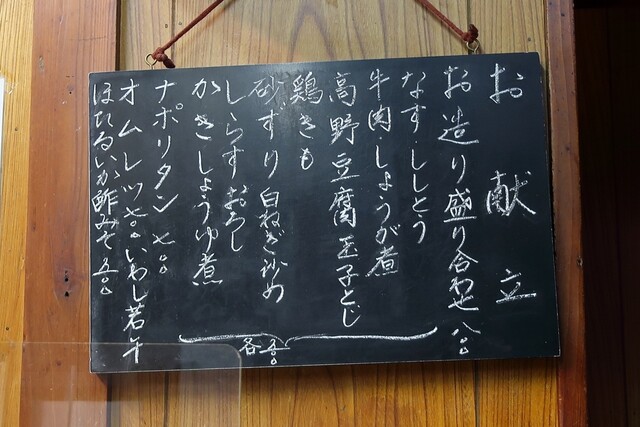 お献立
お造り盛り合わせ 八〇〇
なす.ししとう
牛肉.しょうが煮
高野豆腐玉子とじ
鶏きも
砂ずり白ねぎ炒め
しらすおろし
かきしょうゆ煮
各五〇〇
ナポリタン 七〇〇
オムレツ七〇〇 いわし若午
ほたるいか酢みそ五〇〇